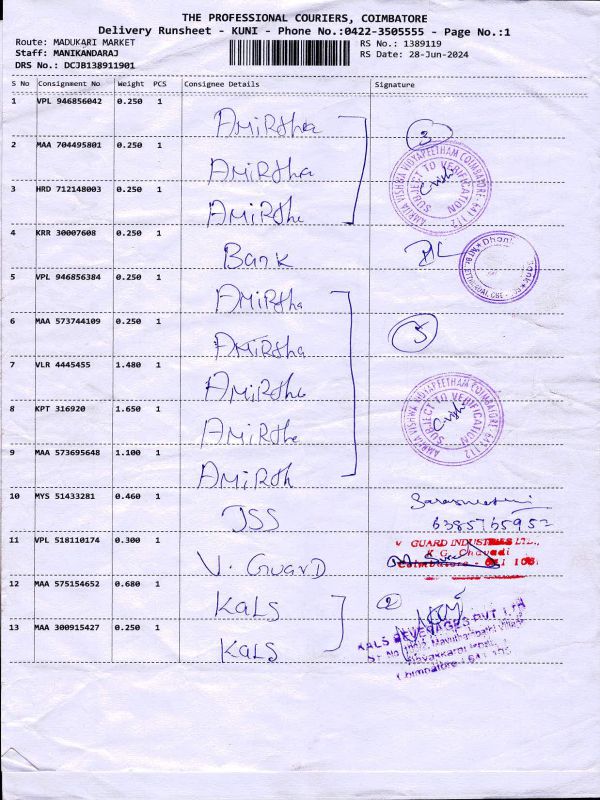 THE PROFESSIONAL COURIERS, COIMBATORE
Delivery Runsheet - KUNI - Phone No.:0422-3505555 - Page No.:1
Route: MADUKARI MARKET
Staff: MANIKANDARAJ
DRS No.: DCJB138911901
RS No.: 1389119
RS Date: 28-Jun-2024
S No Consignment No Weight PCS Consignee Details Signature
1 VPL 946856042 0.250 1 AMiRtha
3
2 MAA 704495801 0.250 1 AMiRtha
AMRITA VISHWA VIDYAPEETHAM COIMBATORE-641 112
SUBJECT TO VERIFICATION
3 HRD 712148003 0.250 1 AMiRthe
4 KRR 30007608 0.250 1 Bank
5 VPL 946856384 0.250 1 AMiRtha
6 MAA 573744109 0.250 1 AMiRtha
5
7 VLR 4445455 1.480 1 AMiRtha
8 KPT 316920 1.650 1 AMiRthe
AMRITA VISHWA VIDYAPEETHAM COIMBATORE-641 112
SUBJECT TO VERIFICATION
9 MAA 573695648 1.100 1 AMiRth
10 MYS 51433281 0.460 1 JSS
6385765952
11 VPL 518110174 0.300 1 V. GUARD
V GUARD INDUSTRIES LTD.,
K G Chavadi
Coimbatore - 641 105
12 MAA 575154652 0.680 1 KALS
2
13 MAA 300915427 0.250 1 KALS
KALS BEVERAGES PVT LTD
Coimbatore - 641 105